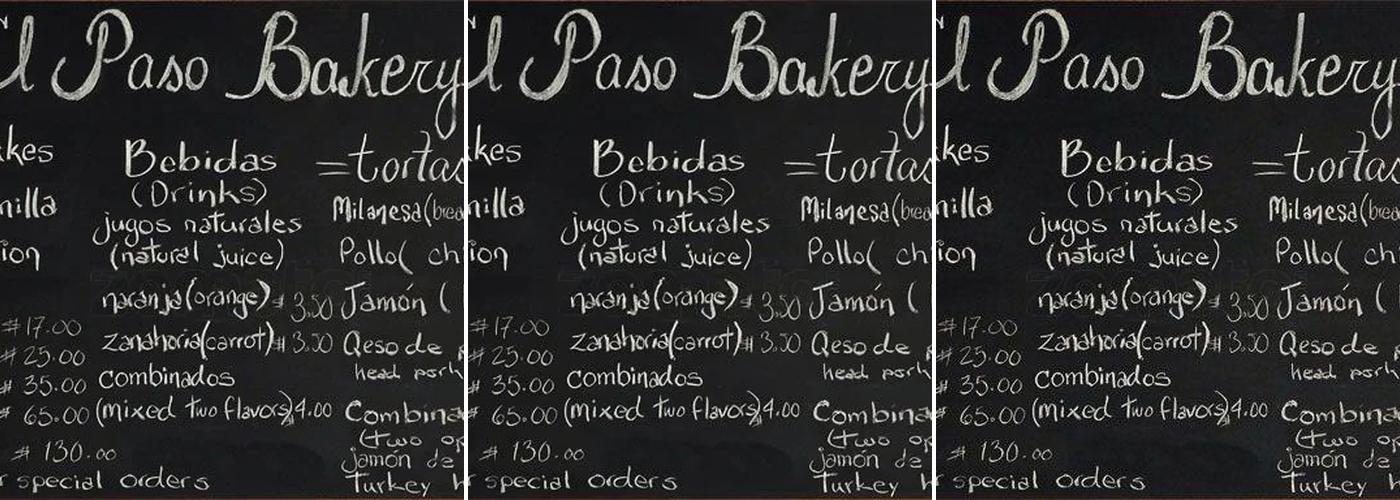 l Paso Bakery
kes
nilla
ion
$17.00
$25.00
$35.00
$65.00
$130.00
r special orders
Bebidas
(Drinks)
jugos naturales
(natural juice)
naranja(orange) $3.50
zanahoria(carrot) $3.50
combinados
(mixed two flavors) 4.00
=tortas
Milanesa(brea
Pollo( ch
Jamón (
Qeso de
head pork
Combina
(two op
jamón de
Turkey
l Paso Bakery
kes
nilla
ion
$17.00
$25.00
$35.00
$65.00
$130.00
r special orders
Bebidas
(Drinks)
jugos naturales
(natural juice)
naranja(orange) $3.50
zanahoria(carrot) $3.50
combinados
(mixed two flavors) 4.00
=tortas
Milanesa(brea
Pollo( ch
Jamón (
Qeso de
head pork
Combina
(two op
jamón de
Turkey
l Paso Bakery
kes
nilla
ion
$17.00
$25.00
$35.00
$65.00
$130.00
r special orders
Bebidas
(Drinks)
jugos naturales
(natural juice)
naranja(orange) $3.50
zanahoria(carrot) $3.50
combinados
(mixed two flavors) 4.00
=tortas
Milanesa(brea
Pollo( ch
Jamón (
Qeso de
head pork
Combina
(two op
jamón de
Turkey